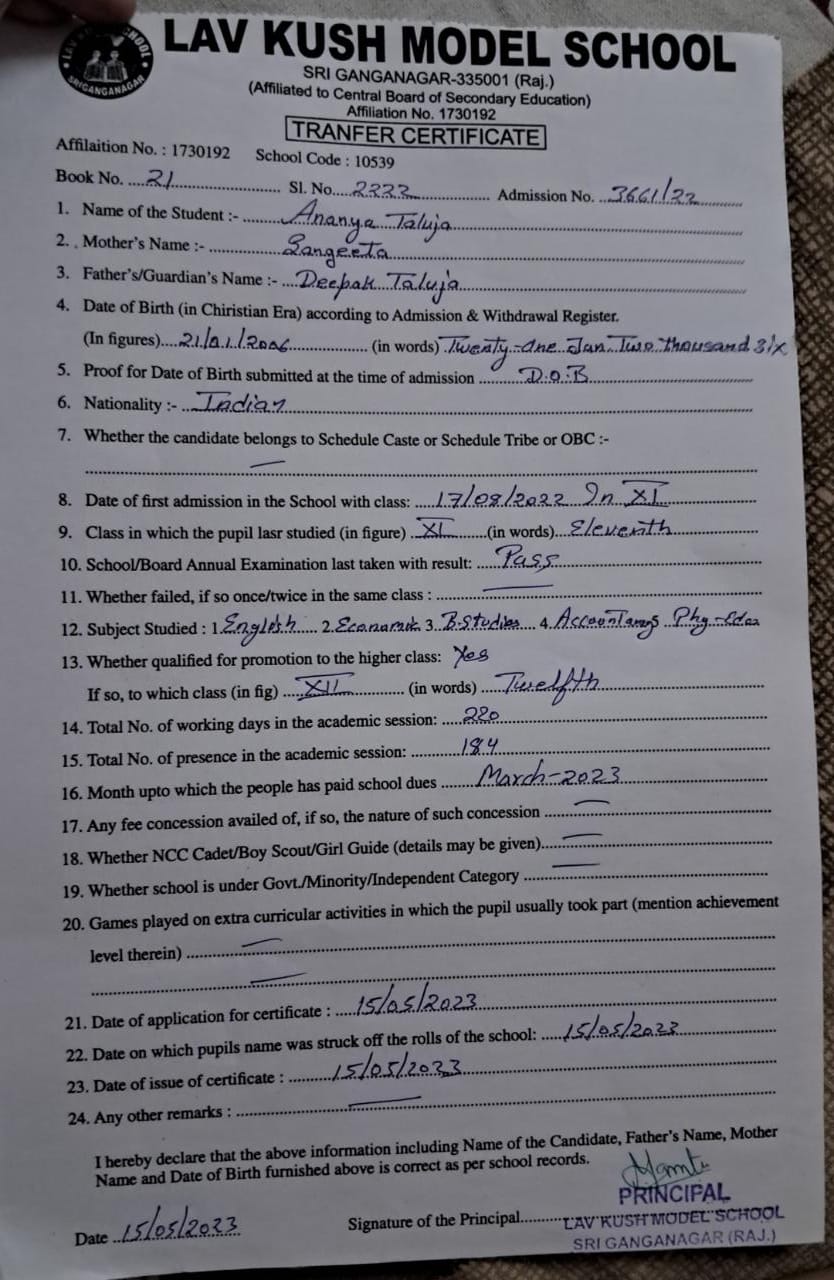 LAV KUSH MODEL SCHOOL
SRI GANGANAGAR-335001 (Raj.)
(Affiliated to Central Board of Secondary Education)
Affiliation No. 1730192
TRANFER CERTIFICATE
Affilaition No. : 1730192 School Code : 10539
Book No. 21 Sl. No. 2222 Admission No. 3661/22
1. Name of the Student :- Ananya Taluja
2. Mother's Name :- Sangeeta
3. Father's/Guardian's Name :- Deepak Taluja
4. Date of Birth (in Chiristian Era) according to Admission & Withdrawal Register.
(In figures) 21/01/2006 (in words) Twenty-One Jan Two thousand Six
5. Proof for Date of Birth submitted at the time of admission D.O.B
6. Nationality :- Indian
7. Whether the candidate belongs to Schedule Caste or Schedule Tribe or OBC :-
—
8. Date of first admission in the School with class: 17/08/2022 In XI
9. Class in which the pupil lasr studied (in figure) XI (in words) Eleventh
10. School/Board Annual Examination last taken with result: Pass
11. Whether failed, if so once/twice in the same class : —
12. Subject Studied : 1. English 2. 3. B.Studies 4. 5 Phy-
13. Whether qualified for promotion to the higher class: Yes
If so, to which class (in fig) XII (in words) Twelfth
14. Total No. of working days in the academic session: 220
15. Total No. of presence in the academic session: 184
16. Month upto which the people has paid school dues March-2023
17. Any fee concession availed of, if so, the nature of such concession —
18. Whether NCC Cadet/Boy Scout/Girl Guide (details may be given) —
19. Whether school is under Govt./Minority/Independent Category —
20. Games played on extra curricular activities in which the pupil usually took part (mention achievement
level therein) —
—
21. Date of application for certificate : 15/05/2023
22. Date on which pupils name was struck off the rolls of the school: 15/05/2023
23. Date of issue of certificate : 15/05/2023
24. Any other remarks : —
I hereby declare that the above information including Name of the Candidate, Father's Name, Mother
Name and Date of Birth furnished above is correct as per school records.
PRINCIPAL
Date 15/05/2023 Signature of the Principal LAV KUSH MODEL SCHOOL
SRI GANGANAGAR (RAJ.)